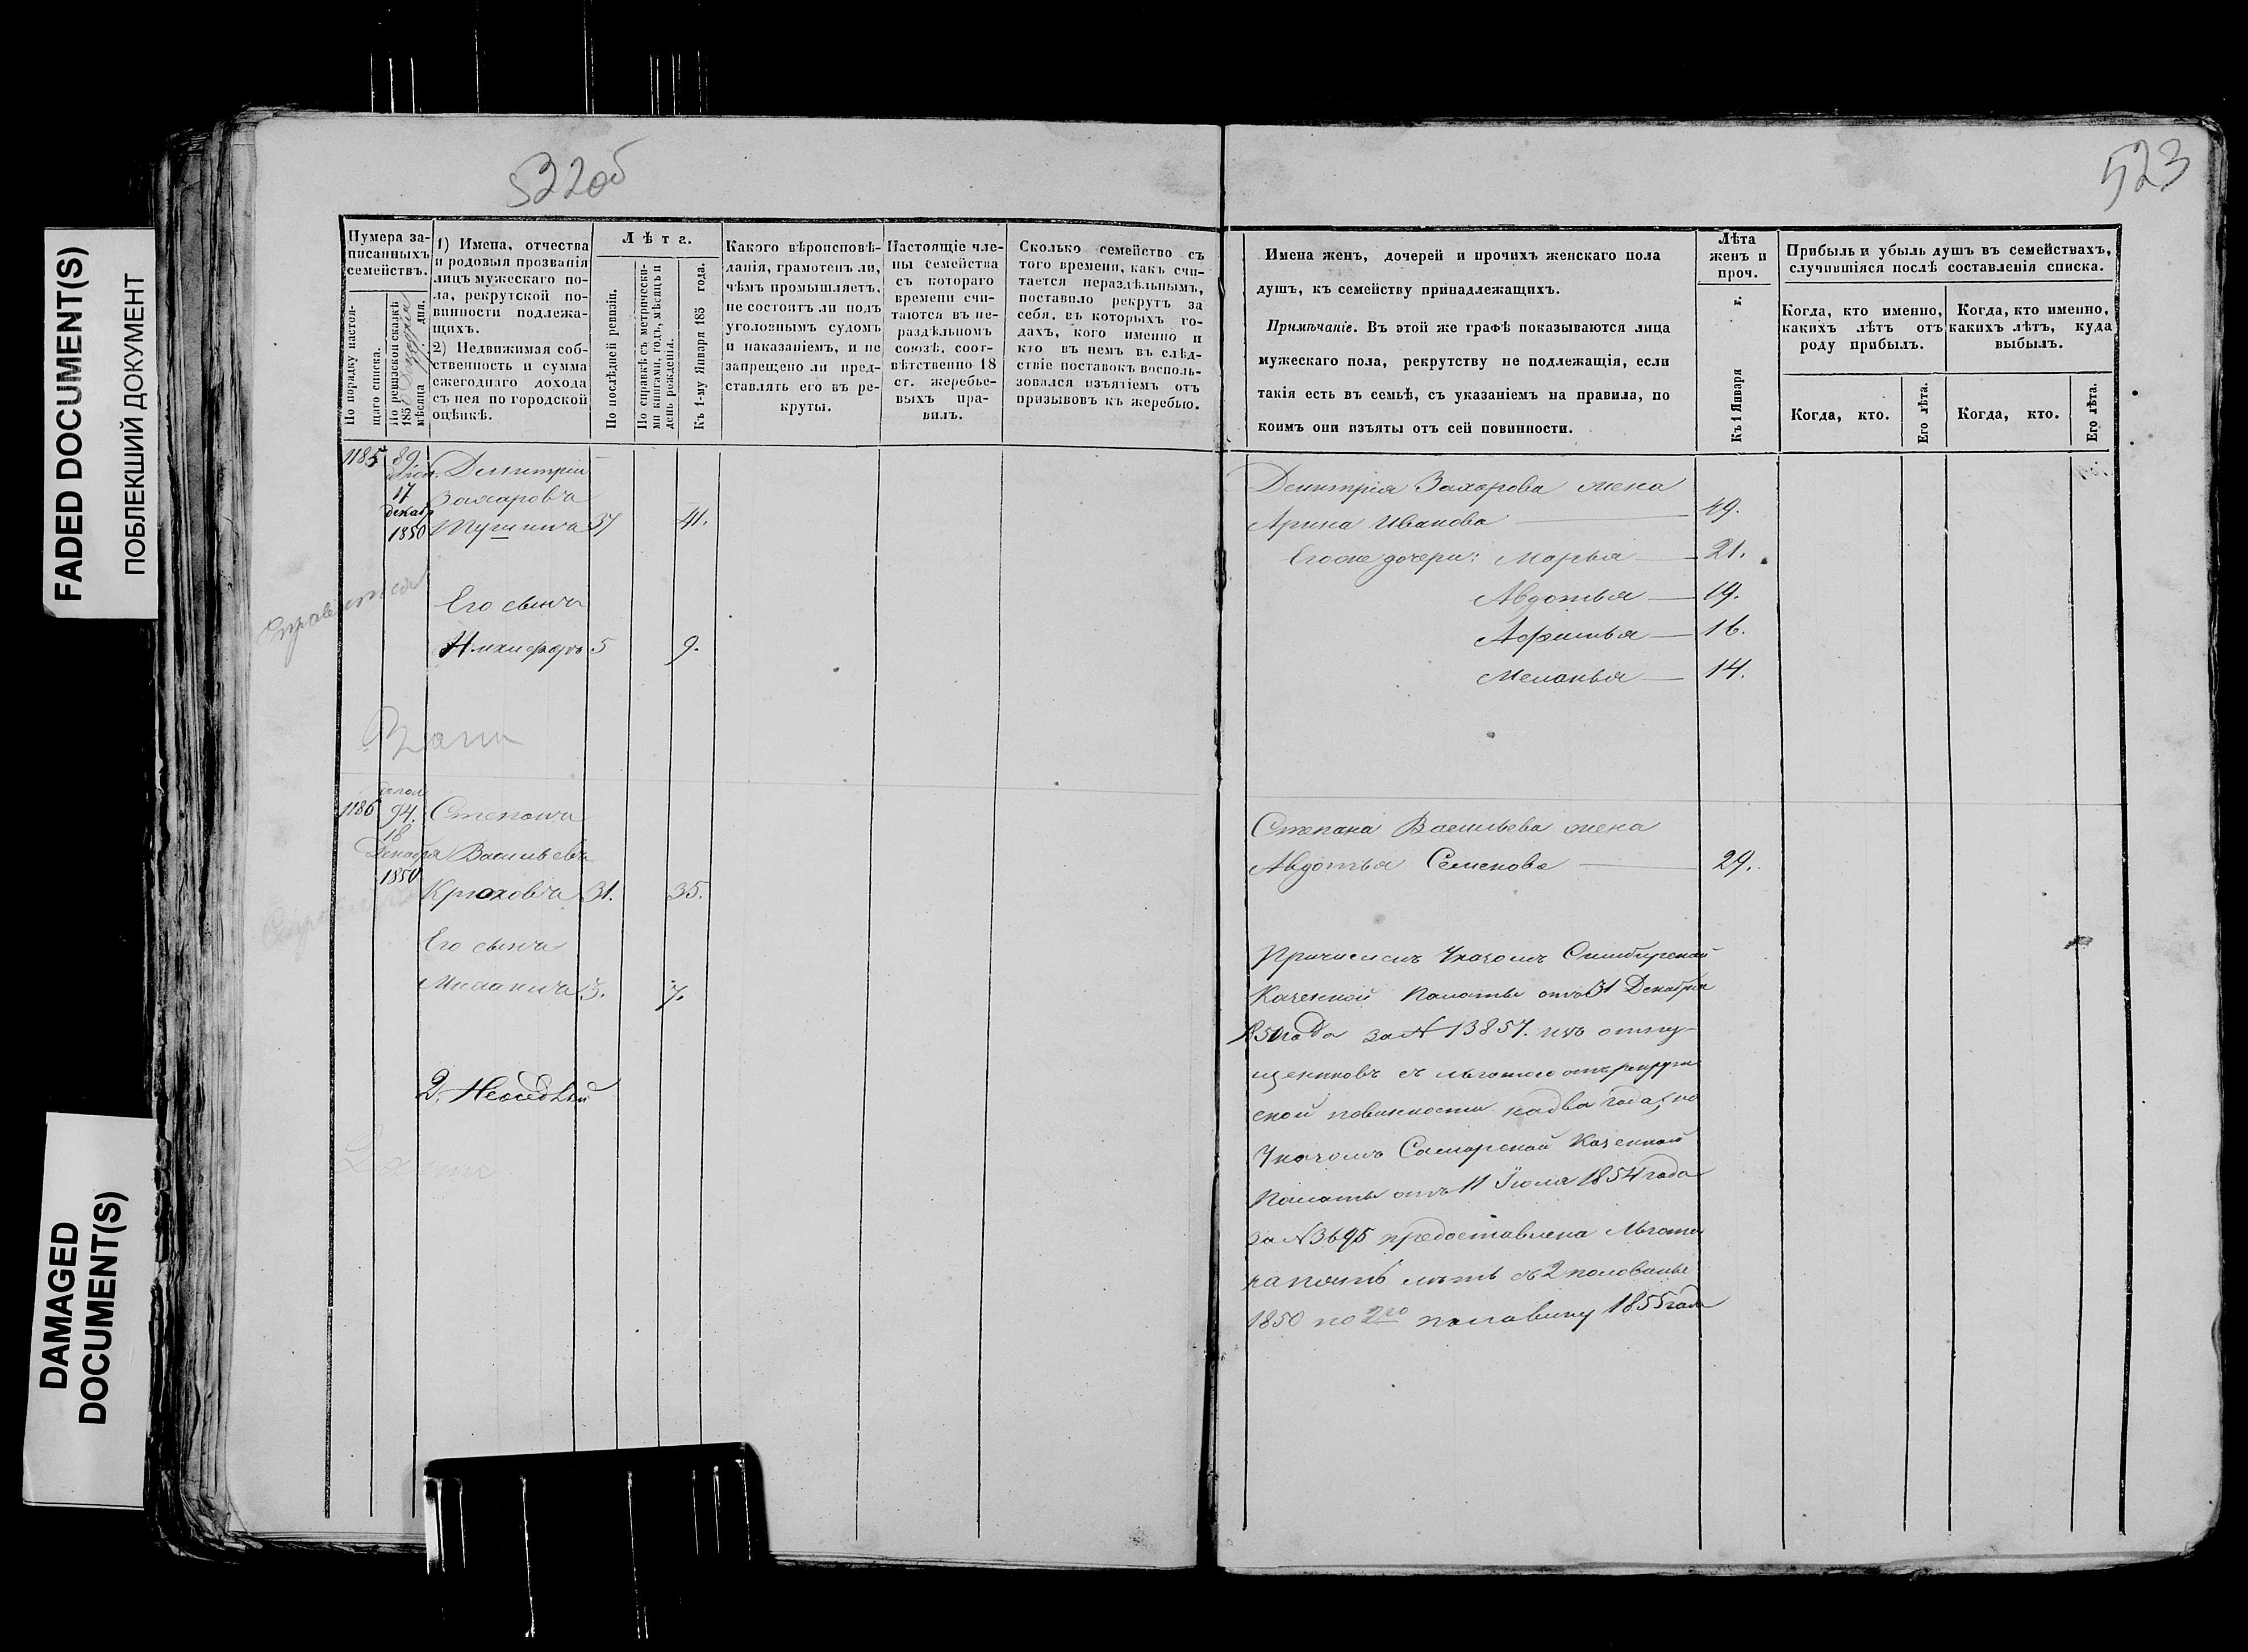 FADED DOCUMENT(S)
ПОБЛЕКШИЙ ДОКУМЕНТ
DAMAGED
DOCUMENT(S)
522об
Нумера за-
писанныхъ
семействъ.
По порядку настоя-
щаго списка.
По ревизской сказкѣ
185
мѣсяца дня.
1) Имена, отчества
и родовыя прозванія
лицъ мужескаго по-
ла, рекрутской по-
винности подлежа-
щихъ.
2) Недвижимая соб-
ственность и сумма
ежегоднаго дохода
съ нея по городской
оцѣнкѣ.
Лѣта.
По послѣдней ревизіи.
По справкѣ съ метрически-
ми книгами, годъ, мѣсяцъ и
день рожденія.
Къ 1-му Января 185 года.
Какого вѣроисповѣ-
данія, грамотенъ ли,
чѣмъ промышляетъ,
не состоитъ ли подъ
уголовнымъ судомъ
и наказаніемъ, и не
запрещено ли пред-
ставлять его въ ре-
круты.
Настоящіе чле-
ны семейства
съ котораго
времени счи-
таются въ не-
раздѣльномъ
союзѣ, соот-
вѣтственно 18
ст. жеребье-
выхъ пра-
вилъ.
Сколько семейство съ
того времени, какъ счи-
тается нераздѣльнымъ,
поставило рекрутъ за
себя, въ которыхъ го-
дахъ, кого именно и
кто въ немъ въ слѣд-
ствіе поставокъ восполь-
зовался изъятіемъ отъ
призывовъ къ жеребью.
1185
89
17
декаб
1850
Дмитрій
Захаровъ
37
41.
Его сынъ
Никифоръ 5
9.
1186
94.
18
Декабря
1850
Степанъ
Васильевъ
Крюковъ 31.
35.
Его сынъ
3.
7.
2, Неоседлый
523
Имена женъ, дочерей и прочихъ женскаго пола
душъ, къ семейству принадлежащихъ.
Примѣчаніе. Въ этой же графѣ показываются лица
мужескаго пола, рекрутству не подлежащія, если
такія есть въ семьѣ, съ указаніемъ на правила, по
коимъ они изъяты отъ сей повинности.
Лѣта
женъ и
проч.
Къ 1 Января г.
Прибыль и убыль душъ въ семействахъ,
случившіяся послѣ составленія списка.
Когда, кто именно,
какихъ лѣтъ отъ
роду прибылъ.
Когда, кто именно,
какихъ лѣтъ, куда
выбылъ.
Когда, кто.
Его лѣта.
Когда, кто.
Его лѣта.
Дмитрія Захарова жена
Арина Иванова 49.
Его же дочери: Марья 21.
Авдотья 19.
Афимья 16.
Меланья 14.
Степана Васильева жена
Авдотья Семенова 29.
Причисленъ Указомъ Симбирской
Казенной Палаты отъ 31 Декабря
850 года за N 13857. изъ отпу-
щенниковъ съ льготою отъ рекрут
ской повинности на два года, но
Указомъ Самарской Казенной
Палаты отъ 11 Іюля 1854 года
за N 3695 предоставлена льгота
на пять лѣтъ съ 2 половины
1850 по 2го половину 1855 года